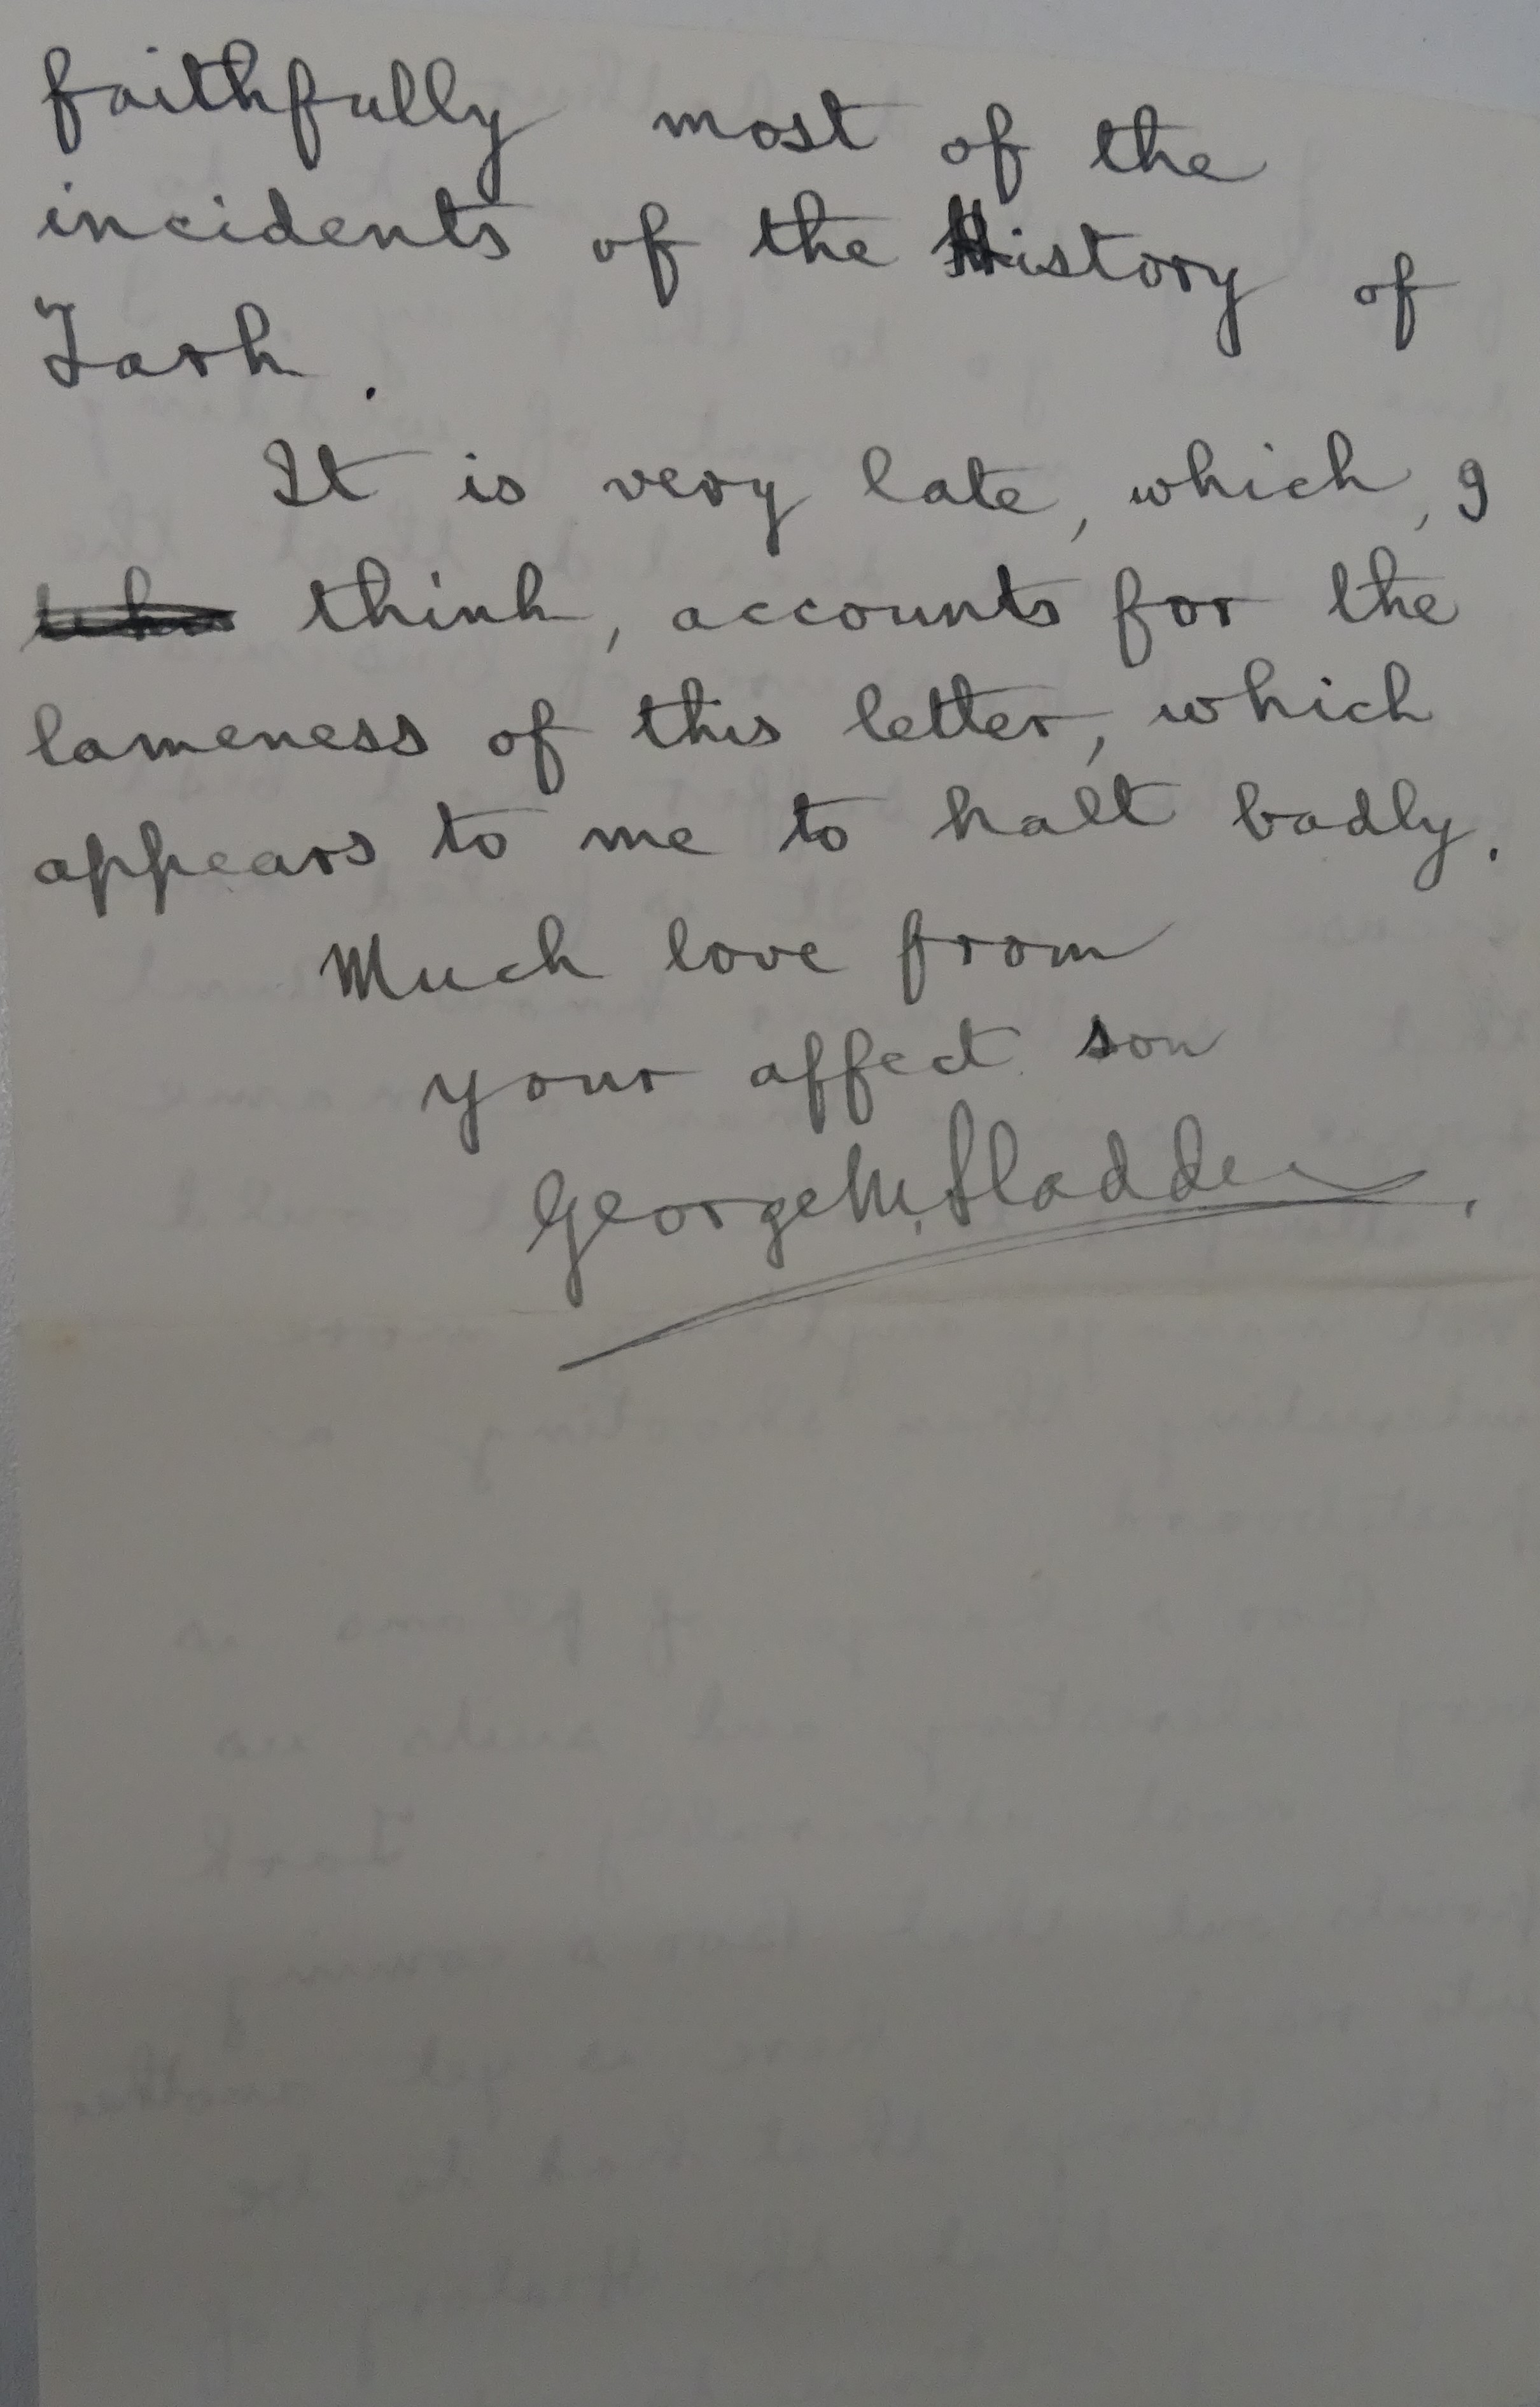 faithfully most of the
incidents of the History of
Tarh.
It is very late, which, I
think, accounts for the
lameness of this letter, which
appears to me to halt badly.
Much love from
your affect. son
George M. Sladden.